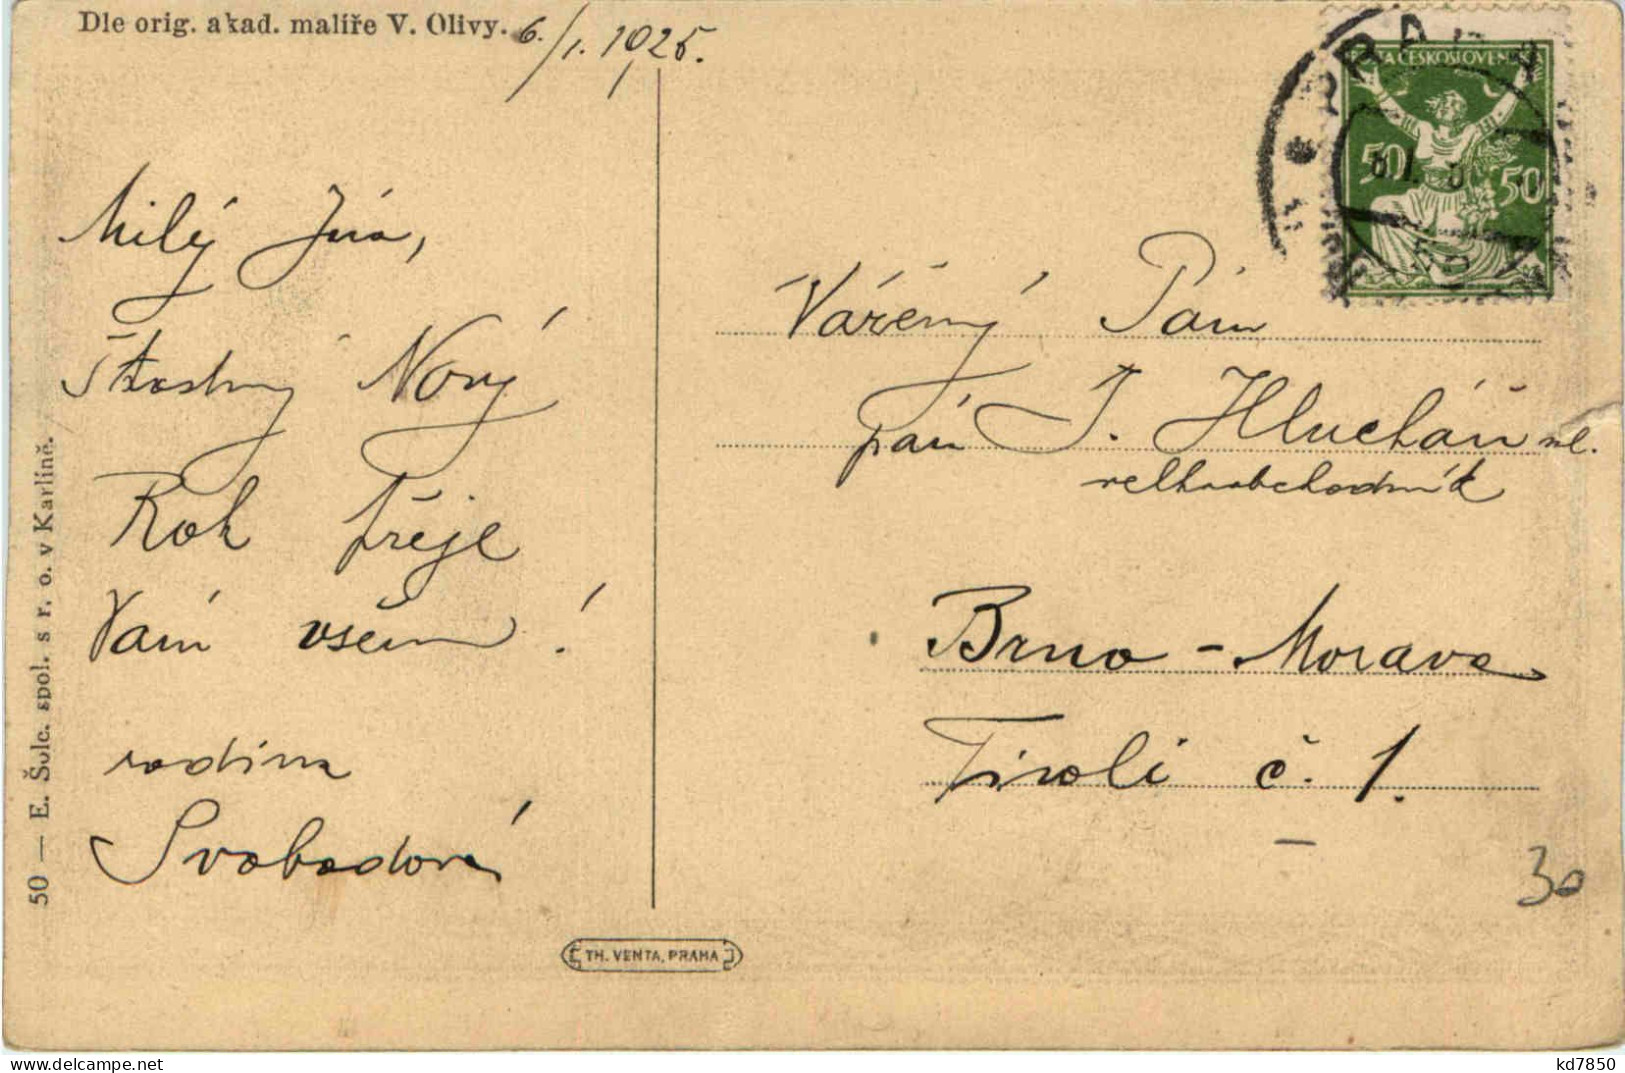 Dle orig. akad. malíře V. Olivy.
6./1. 1925.
Milý Jiro,
Štastný Nový
Rok přeje
Vám všem!
rodina
Svobodová
50 — E. Šolc. spol. s r. o. v Karlíně.
TH. VENTA, PRAHA
ČESKOSLOVEN
50 50
Vážený Pán
pán J. Hlucháň ml.
velkoobchodník
Brno - Morava
Tivoli č. 1.
30
kd7850